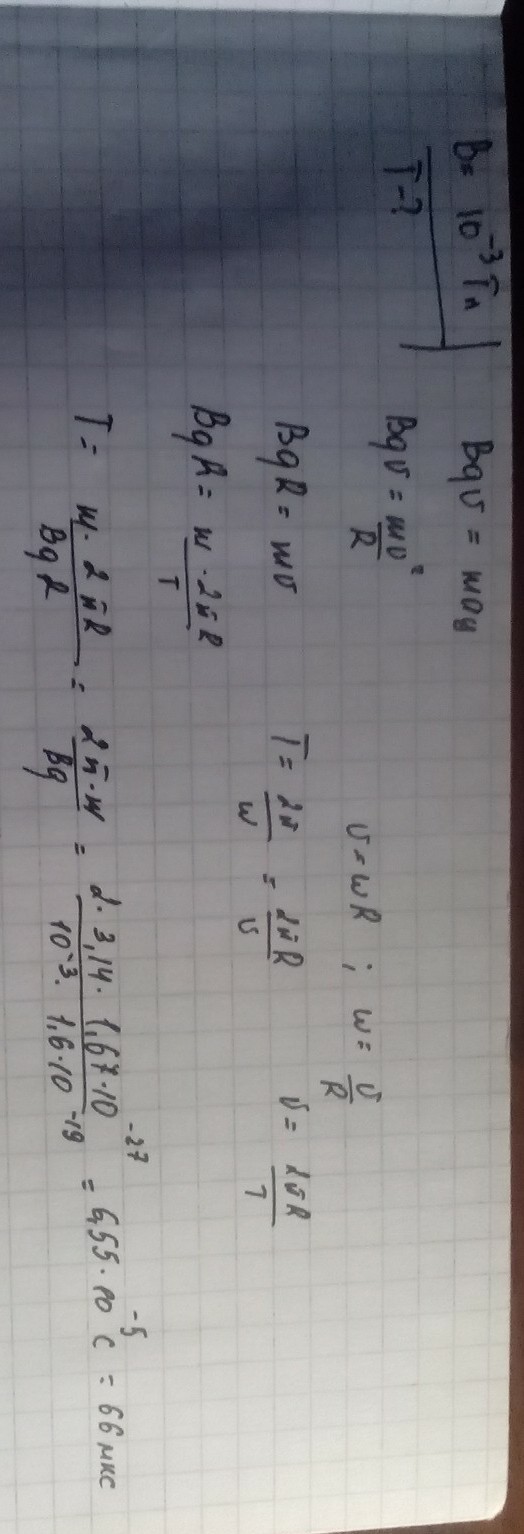 B = 10⁻³ Тл
T - ?
Bqυ = maц
Bqυ = mυ²/R
υ = ωR ; ω = υ/R
BqR = mυ
T = 2π/ω = 2πR/υ
υ = 2πR/T
BqR = m · 2πR/T
T = m · 2πR/BqR = 2π · m/Bq = 2 · 3,14 · 1,67 · 10⁻²⁷/10⁻³ · 1,6 · 10⁻¹⁹ = 6,55 · 10⁻⁵ с = 66 мкс